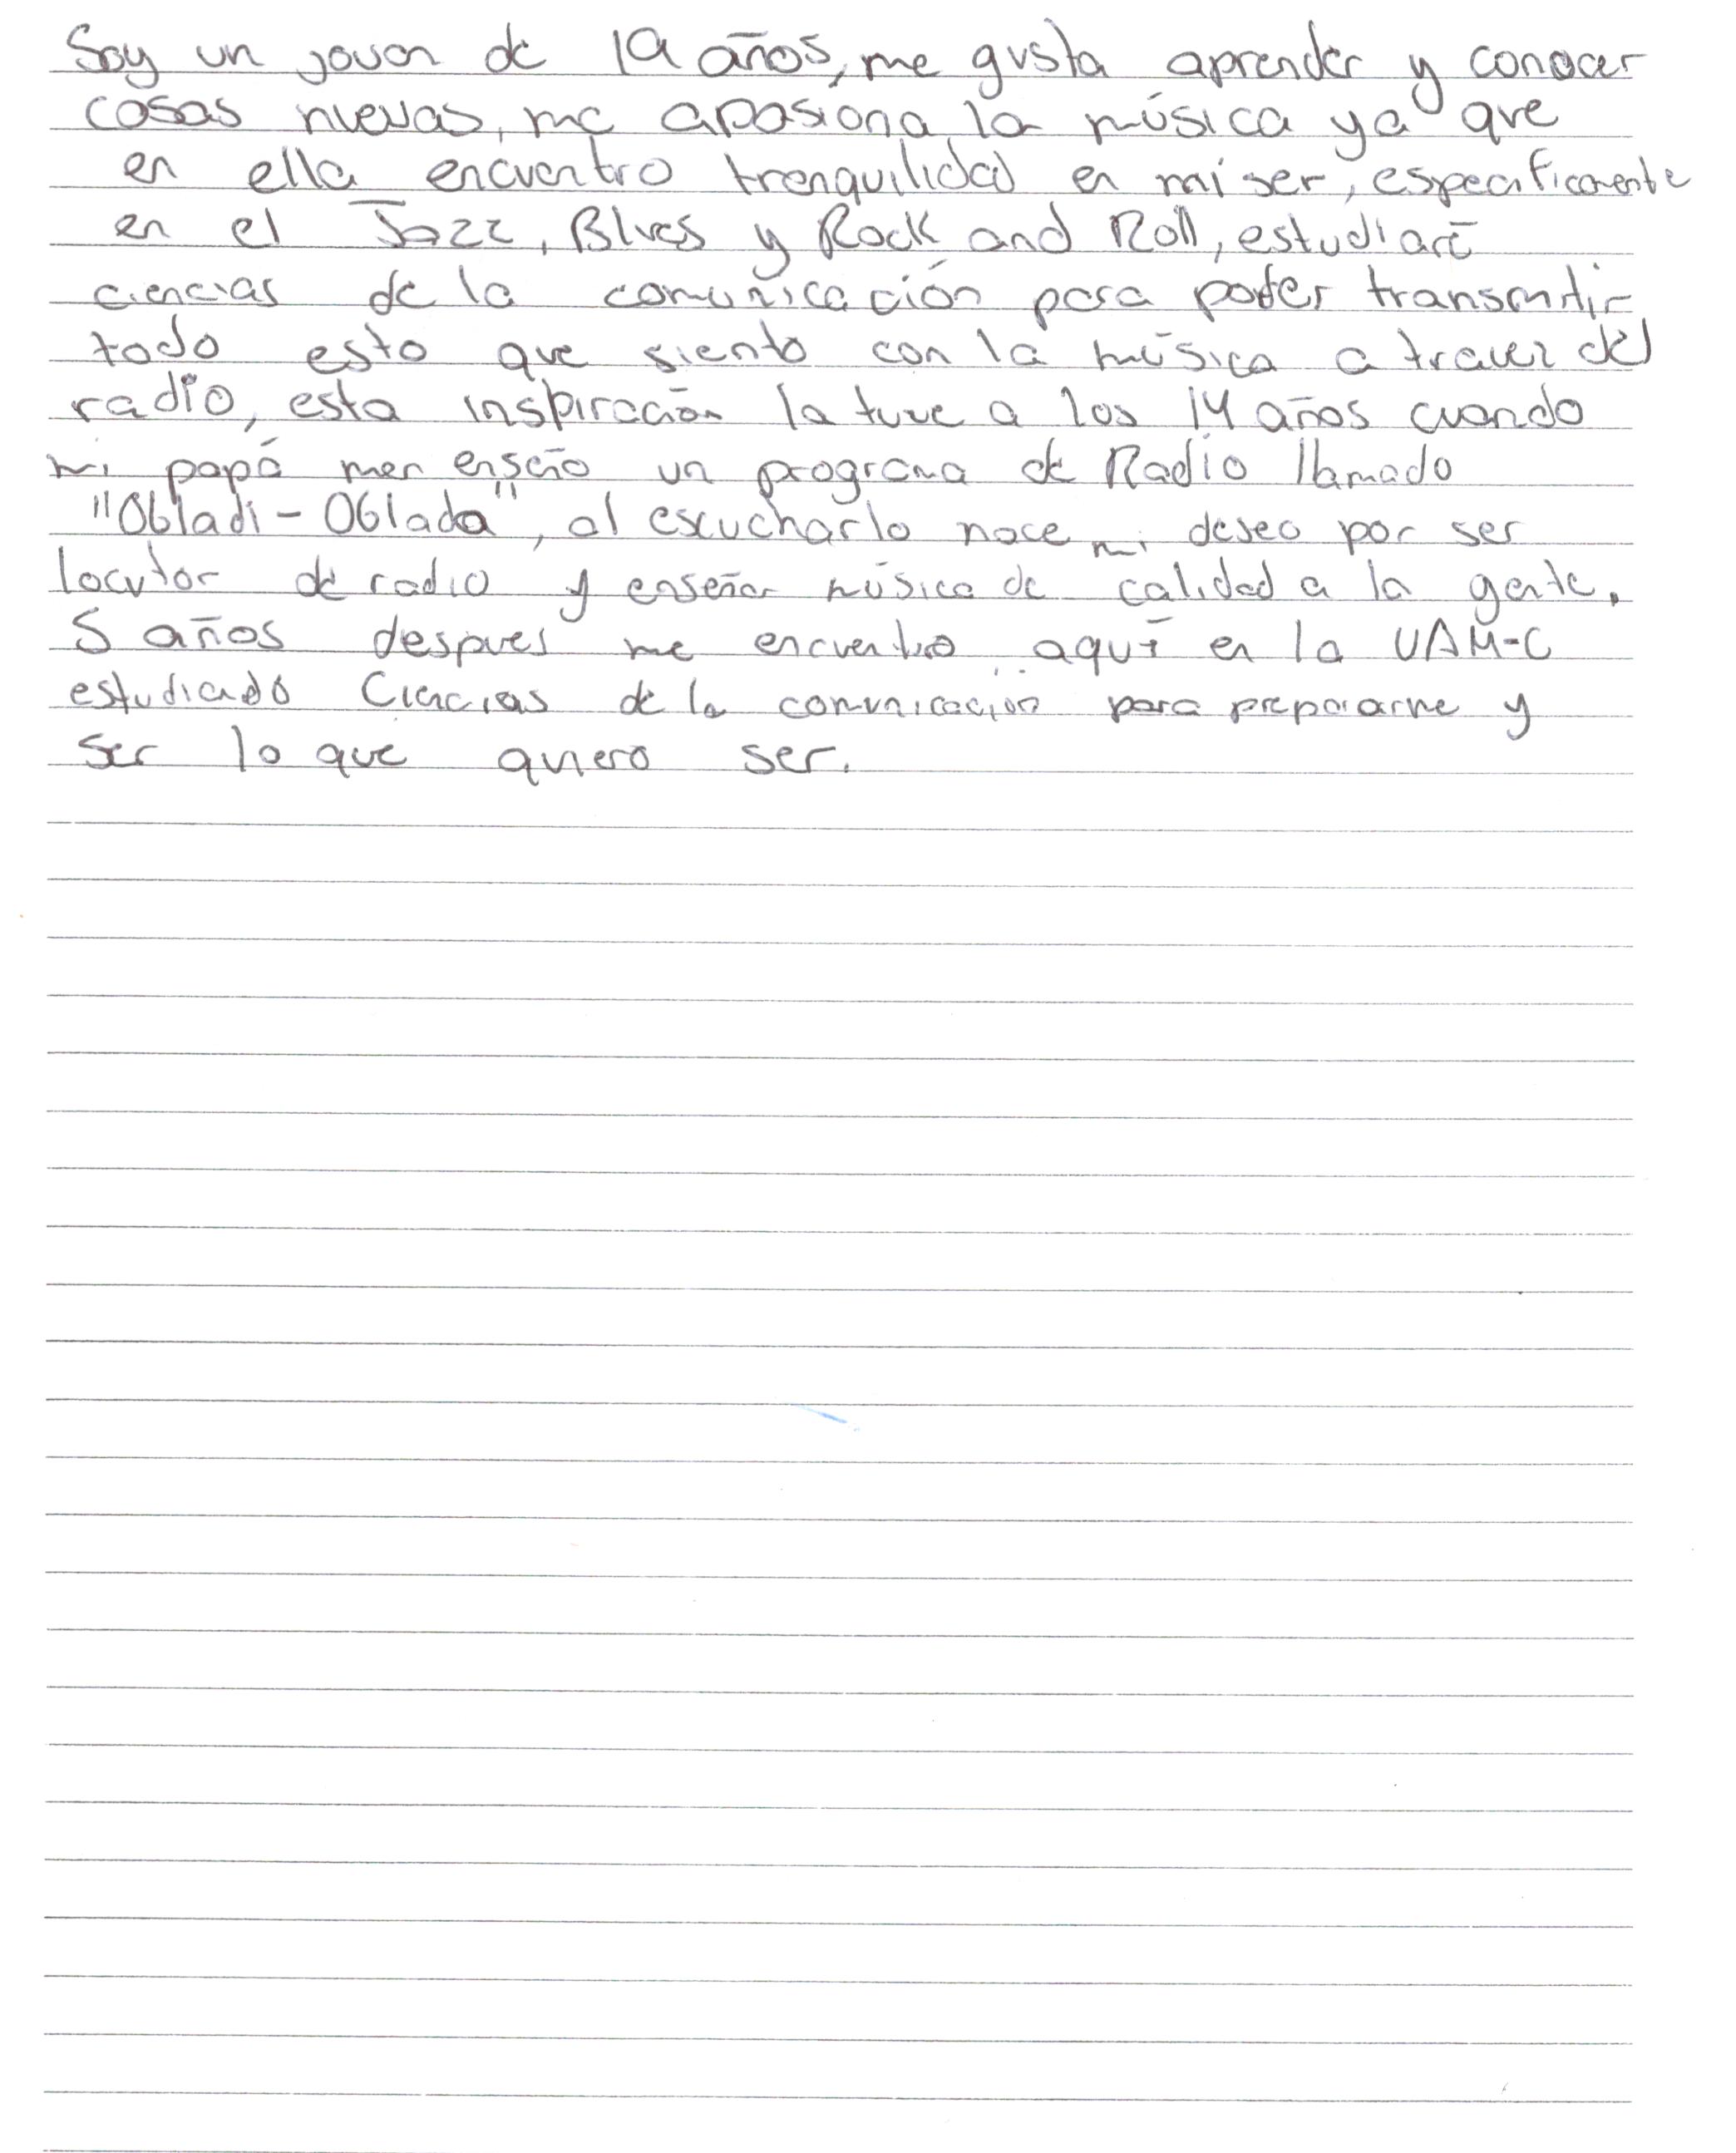 Soy un joven de 19 años, me gusta aprender y conocer
cosas nuevas, me apasiona la música ya que
en ella encuentro tranquilidad en mi ser, especificamente
en el Jazz, Blues y Rock and Roll, estudiaré
ciencias de la comunicación para poder transmitir
todo esto que siento con la música a travez del
radio, esta inspiración la tuve a los 14 años cuando
mi papá men enseño un programa de Radio llamado
"Obladi - Oblada", al escucharlo nace mi deseo por ser
locutor de radio y enseñar música de calidad a la gente.
5 años despues me encuentro aquí en la UAM-C
estudiando Ciencias de la comunicación para prepararme y
ser lo que quiero ser.